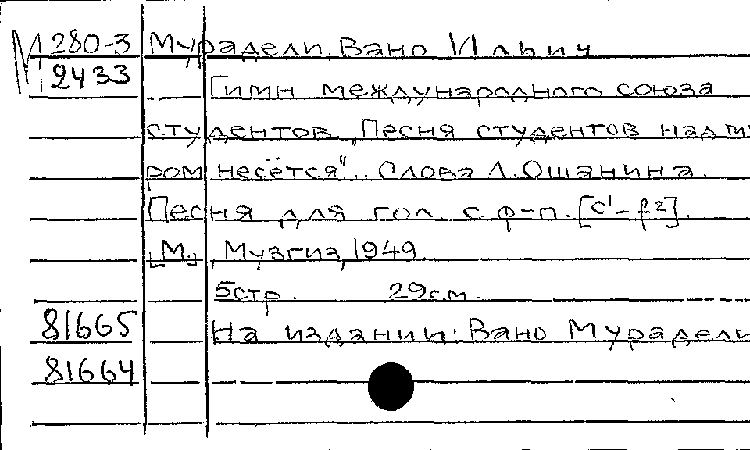 М 280-3 Мурадели, Вано Ильич
2433
Гимн международного союза
студентов „Песня студентов над ми
ром несётся". Слова Л. Ошанина.
Песня для гол. с ф-п. [c¹-f²].
[М.], Музгиз, 1949.
5стр. 29см.
81665 На издании: Вано Мурадели
81664